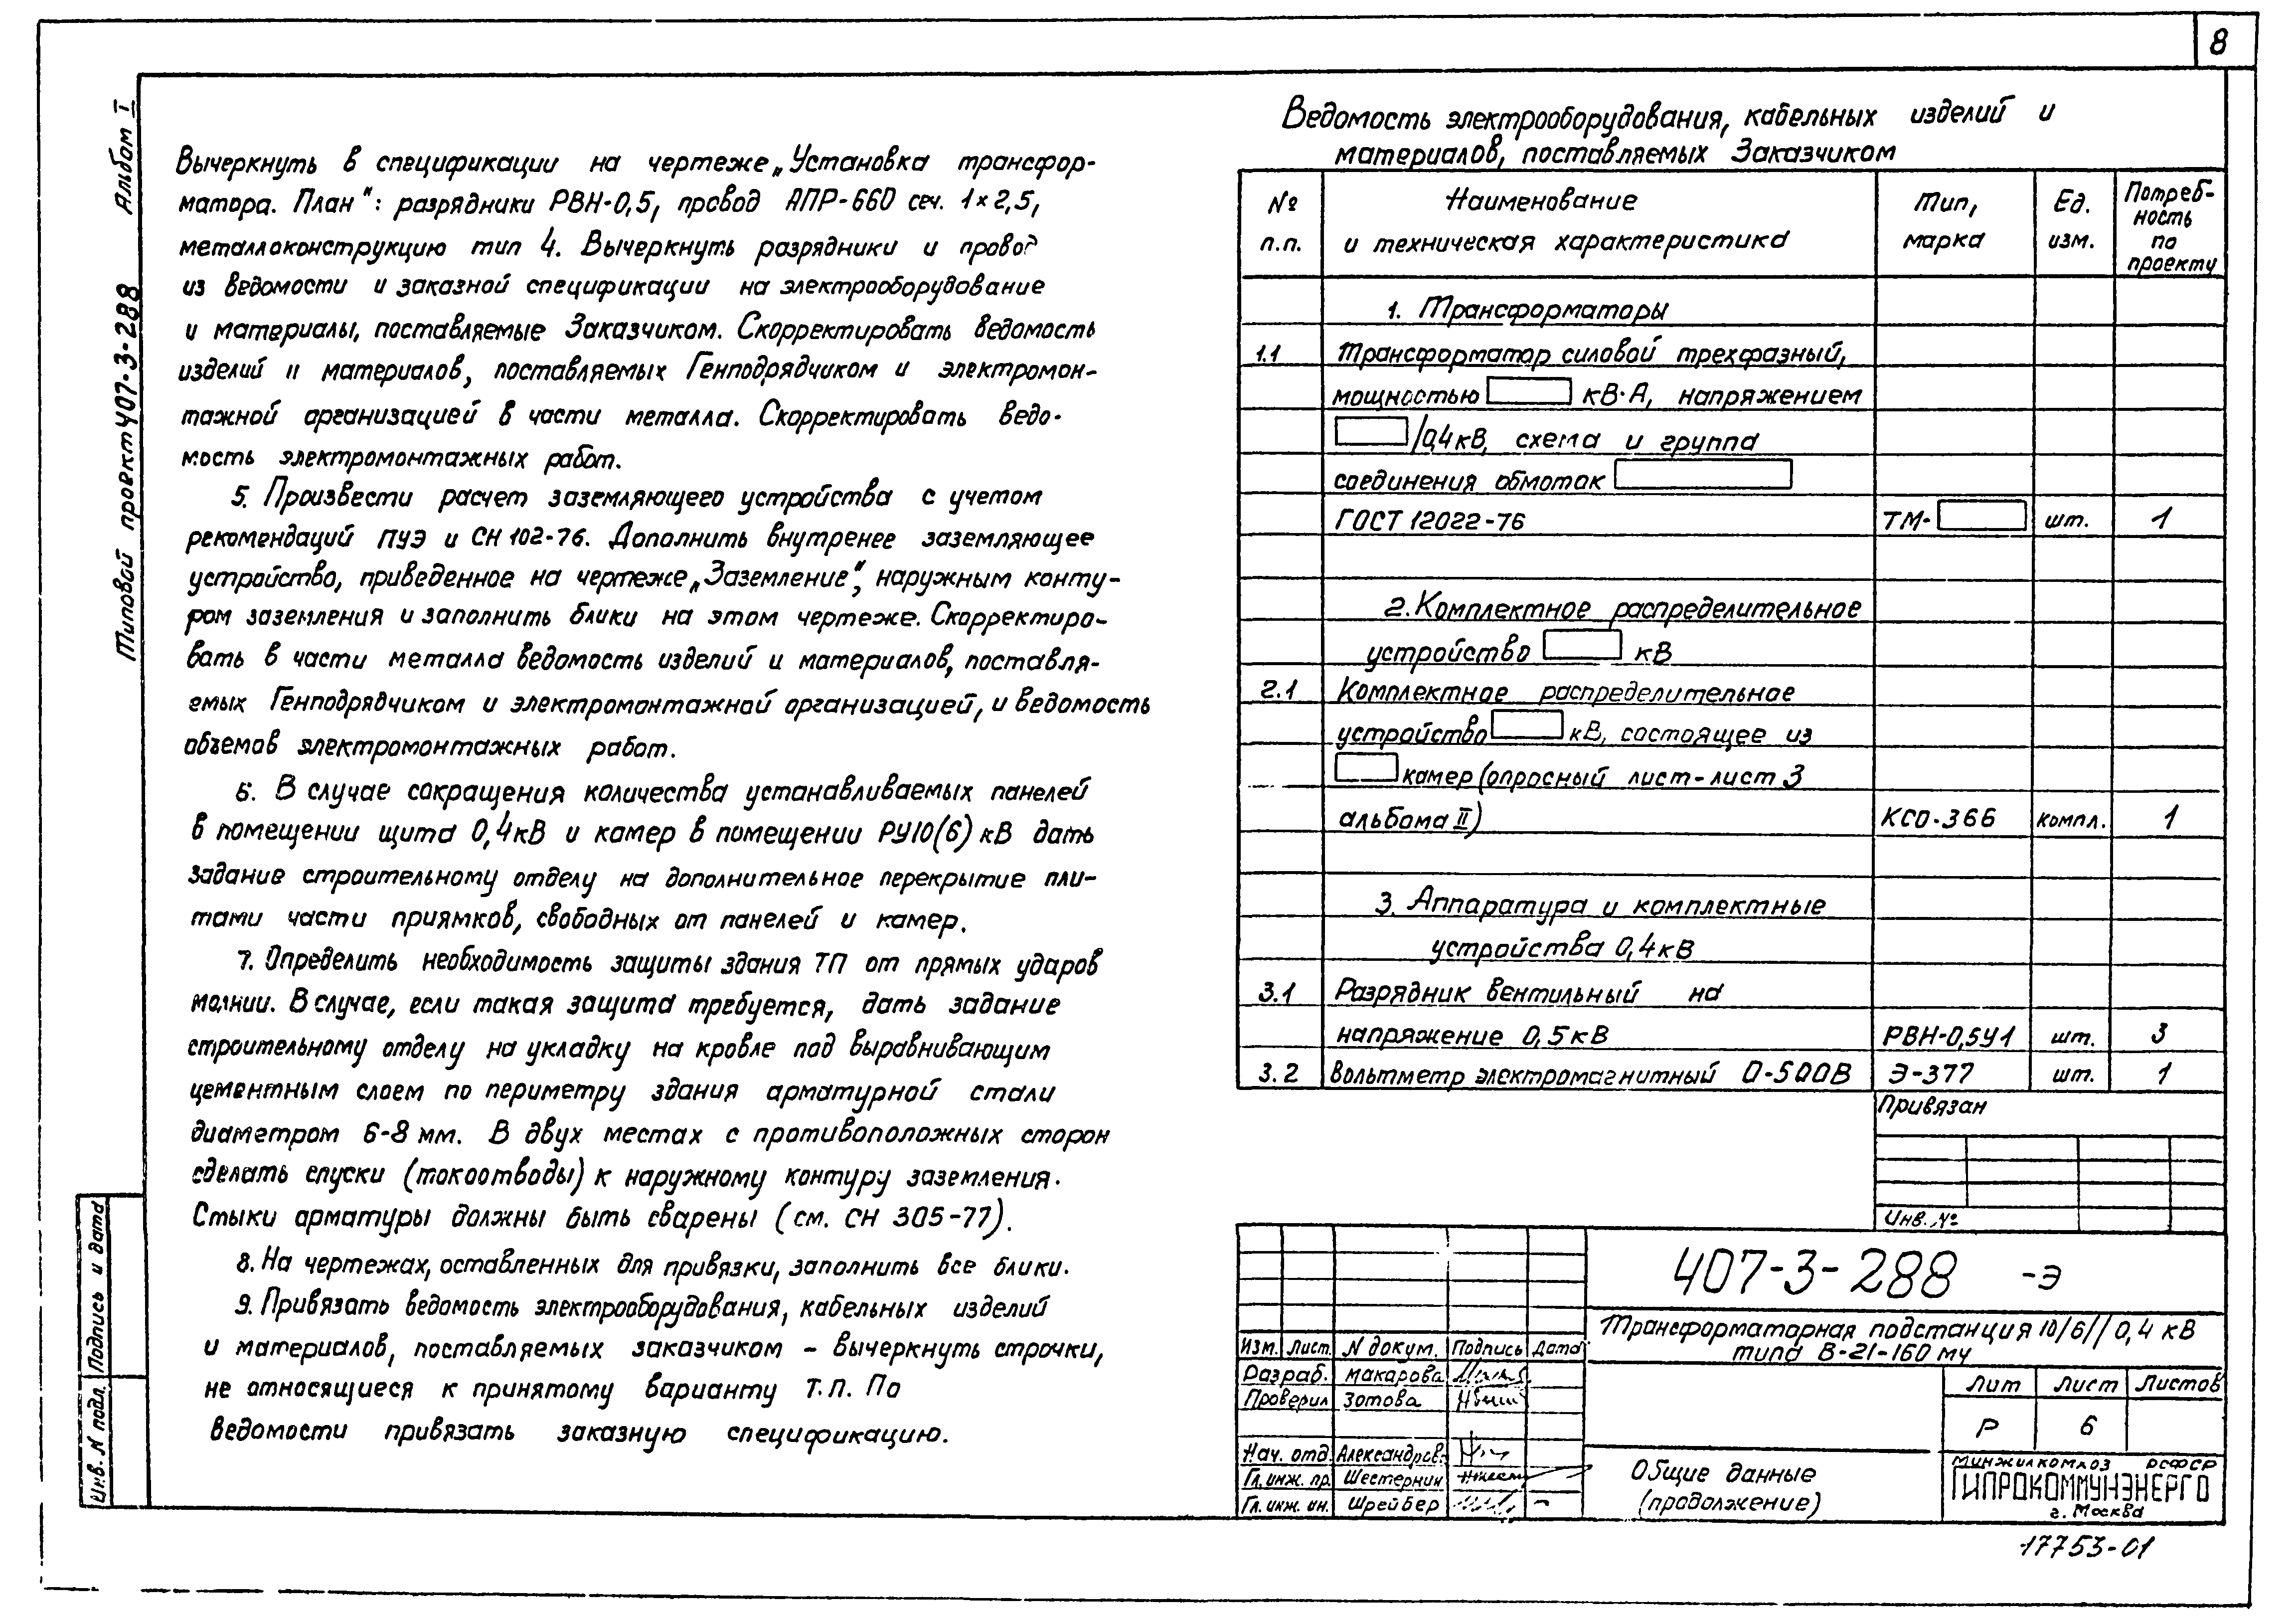 8
Типовой проект 407-3-288 Альбом I
Вычеркнуть в спецификации на чертеже „Установка трансфор-
матора. План": разрядники РВН-0,5, провод АПР-660 сеч. 1×2,5,
металлоконструкцию тип 4. Вычеркнуть разрядники и провод
из ведомости и заказной спецификации на электрооборудование
и материалы, поставляемые Заказчиком. Скорректировать ведомость
изделий и материалов, поставляемых Генподрядчиком и электромон-
тажной организацией в части металла. Скорректировать ведо-
мость электромонтажных работ.
5. Произвести расчет заземляющего устройства с учетом
рекомендаций ПУЭ и СН 102-76. Дополнить внутренее заземляющее
устройство, приведенное на чертеже „Заземление", наружным конту-
ром заземления и заполнить блики на этом чертеже. Скорректиро-
вать в части металла ведомость изделий и материалов, поставля-
емых Генподрядчиком и электромонтажной организацией, и ведомость
объемов электромонтажных работ.
6. В случае сокращения количества устанавливаемых панелей
в помещении щита 0,4кВ и камер в помещении РУ10(6) кВ дать
задание строительному отделу на дополнительное перекрытие пли-
тами части приямков, свободных от панелей и камер.
7. Определить необходимость защиты здания ТП от прямых ударов
молнии. В случае, если такая защита требуется, дать задание
строительному отделу на укладку на кровле под выравнивающим
цементным слоем по периметру здания арматурной стали
диаметром 6-8 мм. В двух местах с противоположных сторон
сделать спуски (токоотводы) к наружному контуру заземления.
Стыки арматуры должны быть сварены (см. СН 305-77).
8. На чертежах, оставленных для привязки, заполнить все блики.
9. Привязать ведомость электрооборудования, кабельных изделий
и материалов, поставляемых заказчиком - вычеркнуть строчки,
не относящиеся к принятому варианту т.п. По
ведомости привязать заказную спецификацию.
Ведомость электрооборудования, кабельных изделий и
материалов, поставляемых Заказчиком
№ п.п. Наименование и техническая характеристика Тип, марка Ед. изм. Потреб-ность по проекту
1. Трансформаторы
1.1 Трансформатор силовой трехфазный,
мощностью кВ·А, напряжением
/0,4кВ, схема и группа
соединения обмоток
ГОСТ 12022-76 ТМ- шт. 1
2. Комплектное распределительное
устройство кВ
2.1 Комплектное распределительное
устройство кВ, состоящее из
камер (опросный лист-лист 3
альбома II) КСО-366 компл. 1
3. Аппаратура и комплектные
устройства 0,4кВ
3.1 Разрядник вентильный на
напряжение 0,5кВ РВН-0,5У1 шт. 3
3.2 Вольтметр электромагнитный 0-500В Э-377 шт. 1
Привязан
Инв. №
407-3-288 -Э
Трансформаторная подстанция 10/6//0,4 кВ
типа В-21-160 му
Изм. Лист. N докум. Подпись Дата
Разраб. Макарова
Проверил Зотова
Нач. отд. Александров.
Гл. инж. пр. Шестернин
Гл. инж. ин. Шрейбер
Лит Лист Листов
Р 6
Общие данные
(продолжение)
Минжилкомхоз РСФСР
ГИПРОКОММУНЭНЕРГО
г. Москва
Инв. N подл. Подпись и дата
17753-01